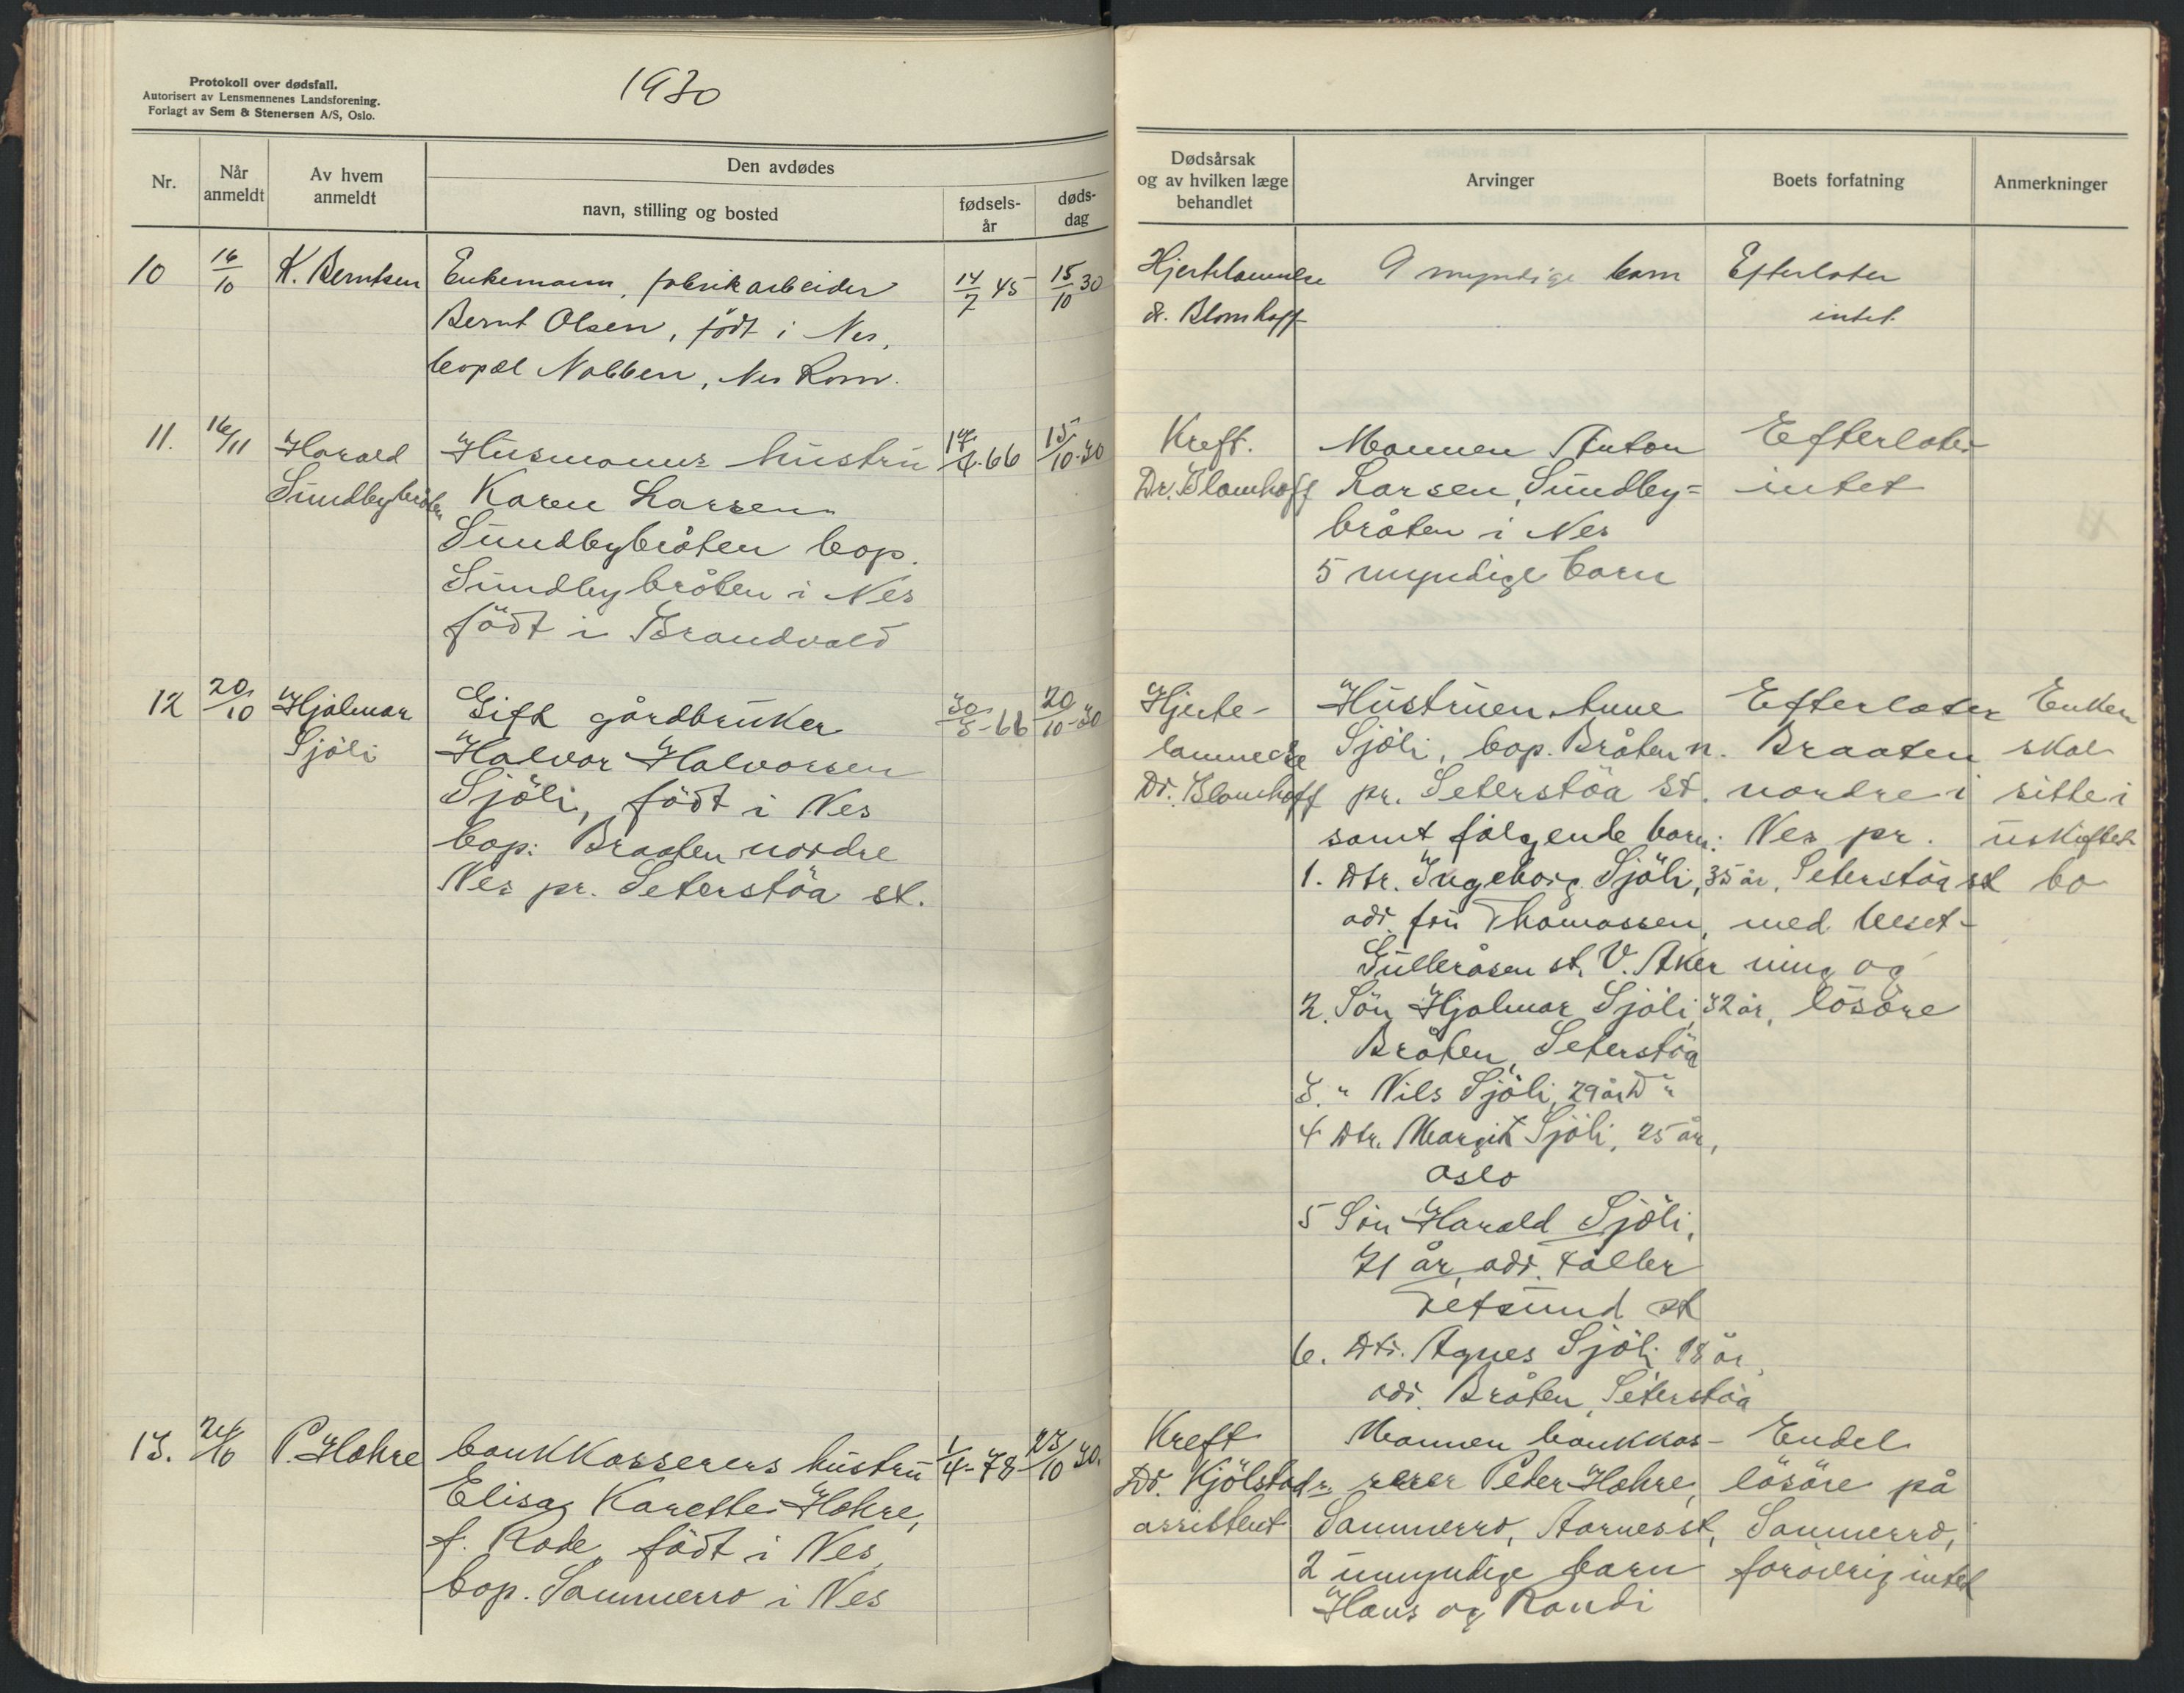 Protokoll over dødsfall.
Autorisert av Lensmennenes Landsforening.
Forlagt av Sem & Stenersen A/S, Oslo.
1930
Nr.
Når anmeldt
Av hvem anmeldt
Den avdødes
navn, stilling og bosted
fødsels-år
døds-dag
Dødsårsak
og av hvilken læge
behandlet
Arvinger
Boets forfatning
Anmerkninger
10 16/10 K. Berntsen Enkemann, fabrikarbeider 14/7 45 15/10 30
Bernt Olsen, födt i Nes,
bopel Nabben, Nes Rom.
Hjertelammelse 9 myndige barn Efterlater
dr. Blomhoff intet
11. 16/11 Harald Husmanns hustru 6-66 15/10-30
Sundbybråten Karen Larsen
Sundbybråten bop.
Sundbybråten i Nes
födt i Brandvold
Kreft. Mannen Anton Efterlater
Dr. Blomhoff Larsen, Sundby= intet
bråten i Nes
5 myndige barn
12 20/10 Hjalmar Gift gårdbruker 30/5-66 20/10-30
Sjöli Halvor Halvorsen
Sjöli, födt i Nes
bop: Braaten nordre
Nes pr. Seterstöa st.
Hjerte- Hustruen Anne Efterlater Enken
lammelse Sjöli, bop. Bråten n. Braaten skal
Dr. Blomhoff pr. Seterstöa st. nordre i sitte i
samt følgende barn: Nes pr. uskiftet
1. Dtr. Ingeborg Sjöli, 35 år, Seterstöa st bo
adr. fru Thomassen, med beset-
Gulleråsen st. V. Aker ning og
2. Sön Hjalmar Sjöli, 32 år, lösöre
Bråten, Seterstöa
3. " Nils Sjöli, 29 år D "
4 Dtr. Margit Sjöli, 25 år,
Oslo
5 Sön Harald Sjöli,
21 år, adr. Faller
Fetsund st
6. Dtr. Agnes Sjöli 18 år,
adr. Bråten, Seterstöa
13. 24/10 P. Hohre bankkasserers hustru 1/4-78 23/10 30.
Elisa Karette Hohre,
f. Rode, födt i Nes,
bop. Sommerro i Nes
Kreft Mannen bankkas- Endel
Dr. Kjölstads serer Peder Hohre, lösöre på
assistent Sommerro, Aarnes st, Sommerro,
2 umyndige barn foröverig intet
Hans og Randi